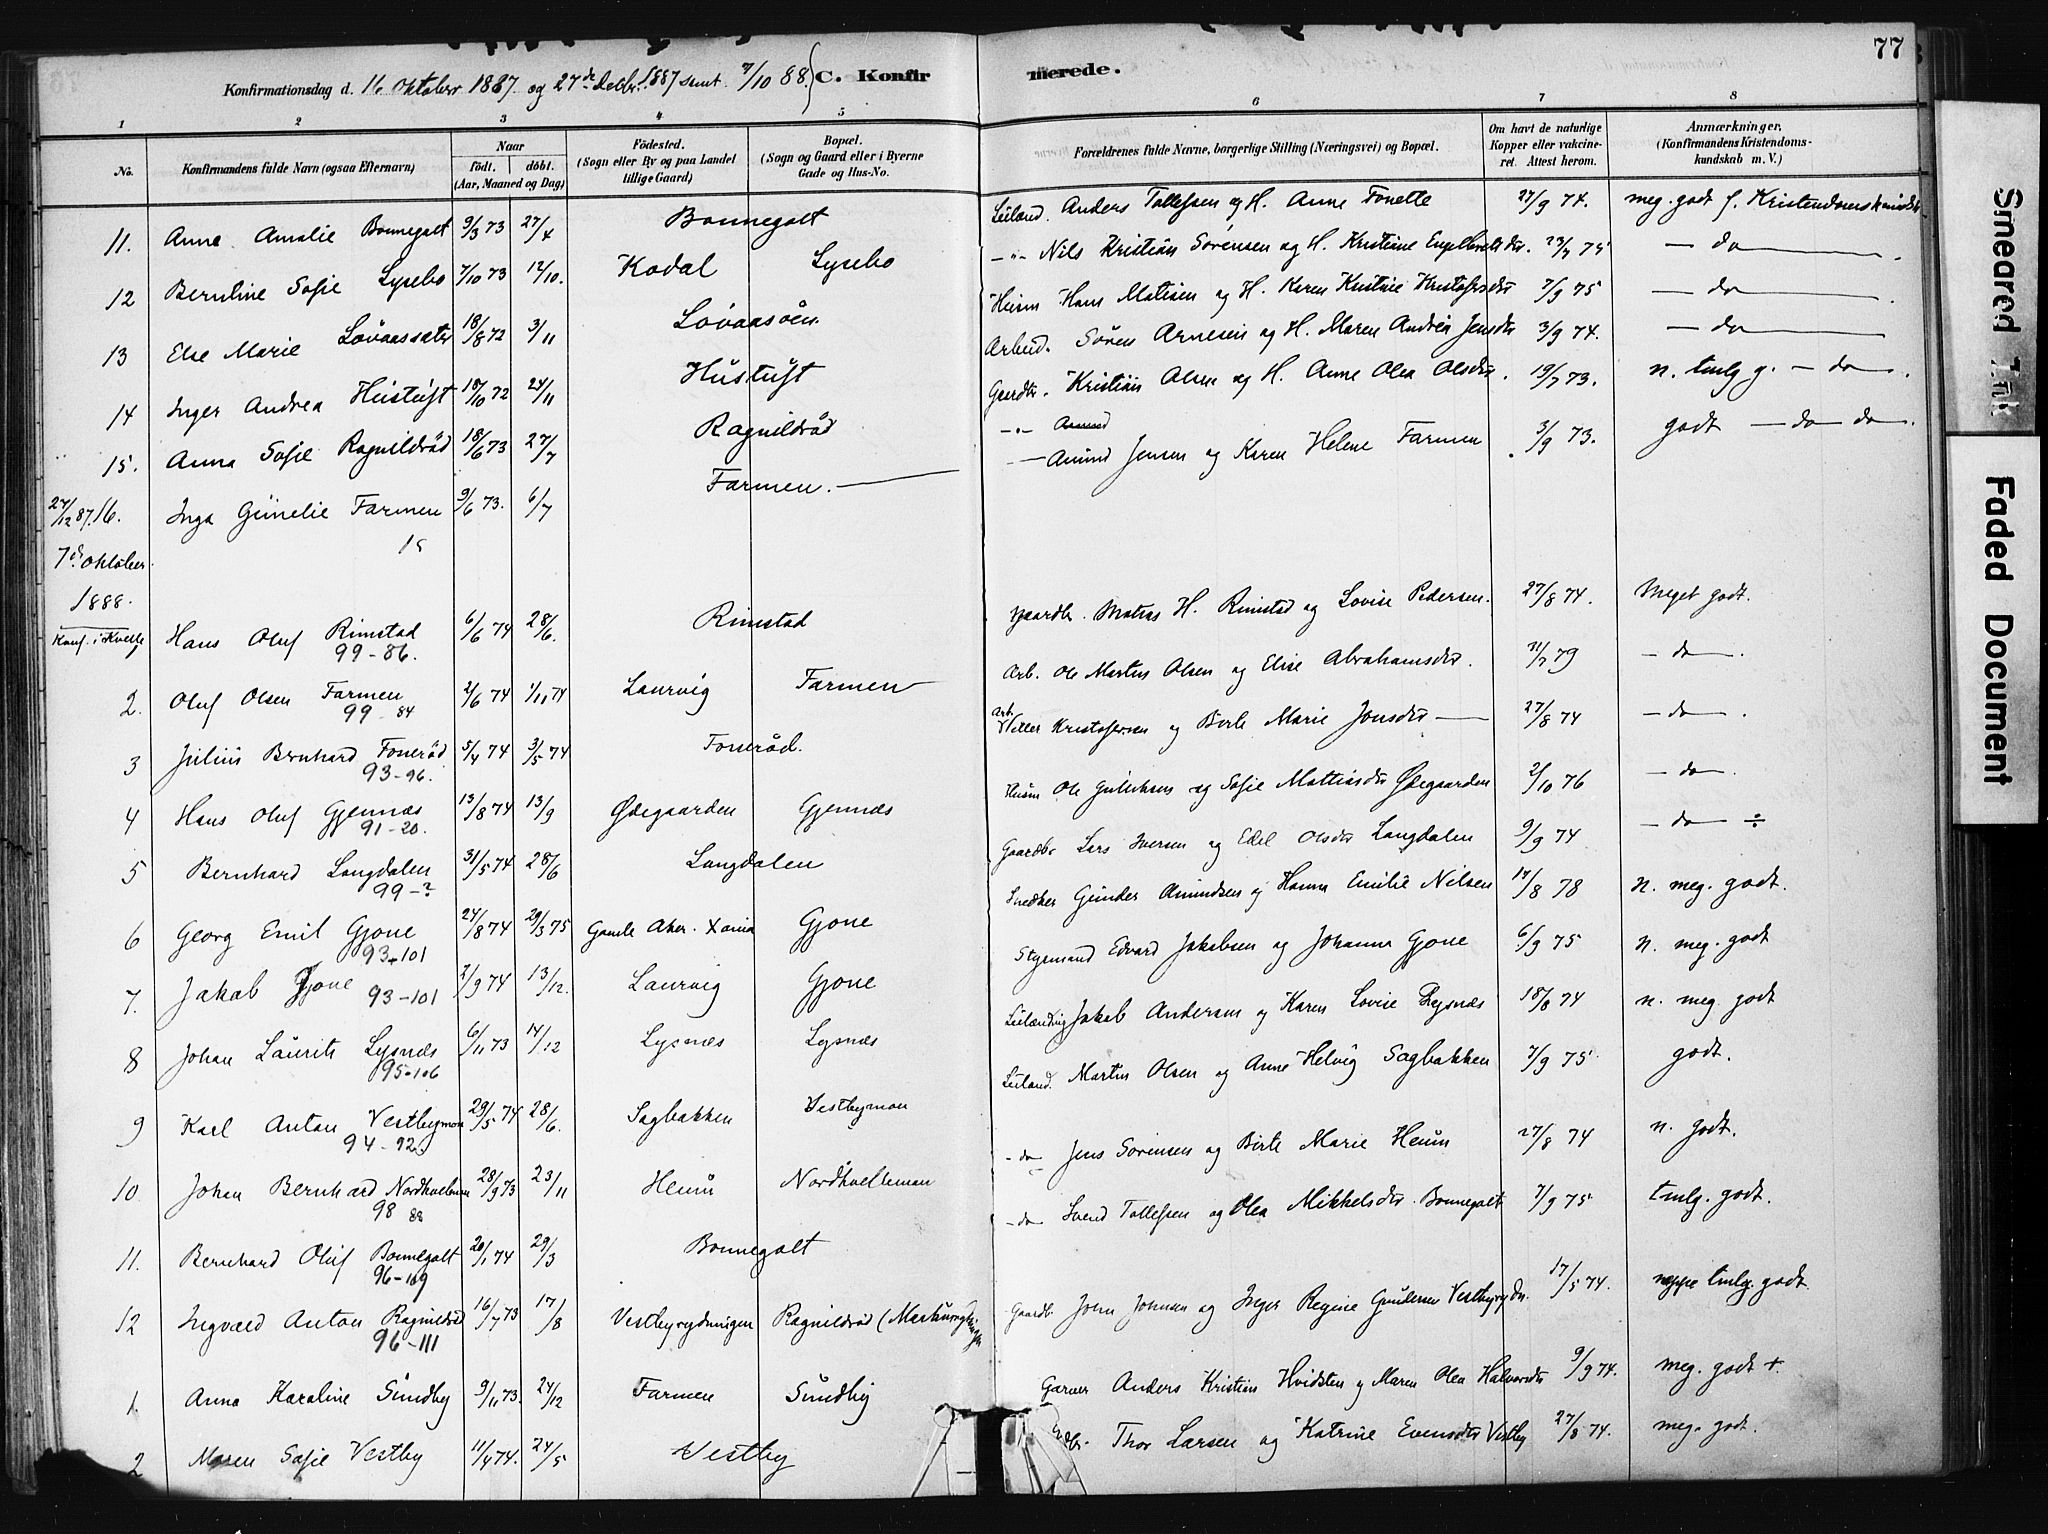 77
Konfirmationsdag d. 16 Oktober 1887. og 27de Decbr. 1887 samt 7/10 88. C. Konfir merede.
1 2 3 4 5 6 7 8
No. Konfirmandens fulde Navn (ogsaa Efternavn) Naar födt. döbt. (Aar, Maaned og Dag) Födested. (Sogn eller By og paa Landet tillige Gaard) Bopæl. (Sogn og Gaard eller i Byerne Gade og Hus-No. Forældrenes fulde Navne, borgerlige Stilling (Næringsvei) og Bopæl. Om havt de naturlige Kopper eller vakcineret. Attest herom. Anmærkninger. (Konfirmandens Kristendomskundskab m. V.)
11. Anne Amalie Bonnegolt 9/3 73 27/4 Bonnegolt Leiland. Anders Tollefsen og H. Anne Tonette 27/9 74. meg. godt f. Kristendomskundsk
12 Berntine Sofie Lysebo 7/10 73 12/10. Kodal Lysebo -"- Nils Kristian Sörensen og H. Kristine Engelbretsdtr. 23/7 75 — do —
13 Else Marie Lövaassæter 18/8 72 3/11 Lövaasöen. Husm Hans Matisen og H. Karen Kristine Kristofersdtr 7/9 75 — do —
14 Inger Andrea Hustuft 18/10 72 24/11 Hustuft Arbeid. Sören Arnesen og H. Maren Andrea Jensdtr 3/9 74. — do —
15. Anna Sofie Ragnildröd 18/6 73 27/7 Ragnildröd Gaardbr. Kristian Olsen og H. Anne Olea Olsdtr. 19/7 73. n. tmlg g. — do —.
27/12 87. 16. Inga Gunelie Farmen 9/6 73. 6/7 Farmen. — -"- Amund Jensen og Karen Helene Farmen 3/9 73. godt — do — do —.
15
7de Oktober
1888.
Konf. i Kvelle
Hans Oluf Rimstad 6/6 74 28/6. Rimstad Gaardbr. Matias H. Rimstad og Lovise Pedersen. 27/8 74. Meget godt.
99-86.
2. Oluf Olsen Farmen 2/6 74 1/11 74 Laurvig Farmen Arb. Ole Martin Olsen og Elise Abrahamsdtr. 11/7 79 — do —.
99-84
3 Julius Bernhard Foneröd 5/4 74 3/5 74 Foneröd. Arb. Niller Kristofersen og Birte Marie Jonsdtr — 27/8 74 — do —.
93-96.
4 Hans Oluf Gjennæs 13/8 74 13/9 Ødegaarden Gjennæs Husm Ole Gulliksen og Sofie Mattiasdtr Ødegaarden 2/10 76 — do —.
91-20.
5 Bernhard Langdalen 31/5 74 28/6 Langdalen Gaardbr Lars Iversen og Edel Olsdtr Langdalen 9/9 74 — do — ÷
99-?
6 Georg Emil Gjone 24/8 74 29/3 75 Gamle Aker. Xania Gjone Snedker Gunder Amundsen og Hanna Emilie Nilsen 17/8 78 n. meg. godt.
93-101
7. Jakob Gjone 2/9 74 13/12. Laurvig Gjone Styrmand Edvard Jakobsen og Johanna Gjone 6/9 75 n. meg. godt
93-101
8 Johan Laurits Lysnæs 6/11 73 14/12 Lysnæs Lysnæs Leilænding Jakob Andersen og Karen Lovise Lysnæs 18/8 74 n. meg. godt
95-106
9 Karl Anton Vestbymoen 29/5 74 28/6. Sagbakken Vestbymoen Leiland. Martin Olsen og Anne Helvig Sagbakken 7/9 75 godt.
94-92
10 Johan Bernhard Nordkvellemoen 28/9 73 23/11 Heum Nordkvellemoen — do Jens Sörensen og Birte Marie Heum 27/8 74 n. godt.
98 88
11. Bernhard Oluf Bonnegolt 20/1 74 29/3 Bonnegolt — do Svend Tollefsen og Olea Mikkelsdtr. Bonnegolt 7/9 75 tmlg. godt.
96-109
12 Ingvald Anton Ragnildröd 16/7 73 17/8 Vestbyrydningen Ragnildröd Gaardb. John Johnsen og Inger Regine Gundersen Vestbyrydn. 17/5 74. neppe tmlg. godt
96-111
1. Anna Karoline Sundby 9/11 73. 24/12 Farmen Sundby Garver Anders Kristian Hvidsten og Maren Olea Halvorsdtr 9/9 74. meg. godt +
2 Maren Sofie Vestby 11/4 74. 24/5 Vestby Thor Larsen og Katrine Evensdtr Vestby 27/8 74. meg. godt.
Smeared Ink
Faded Document